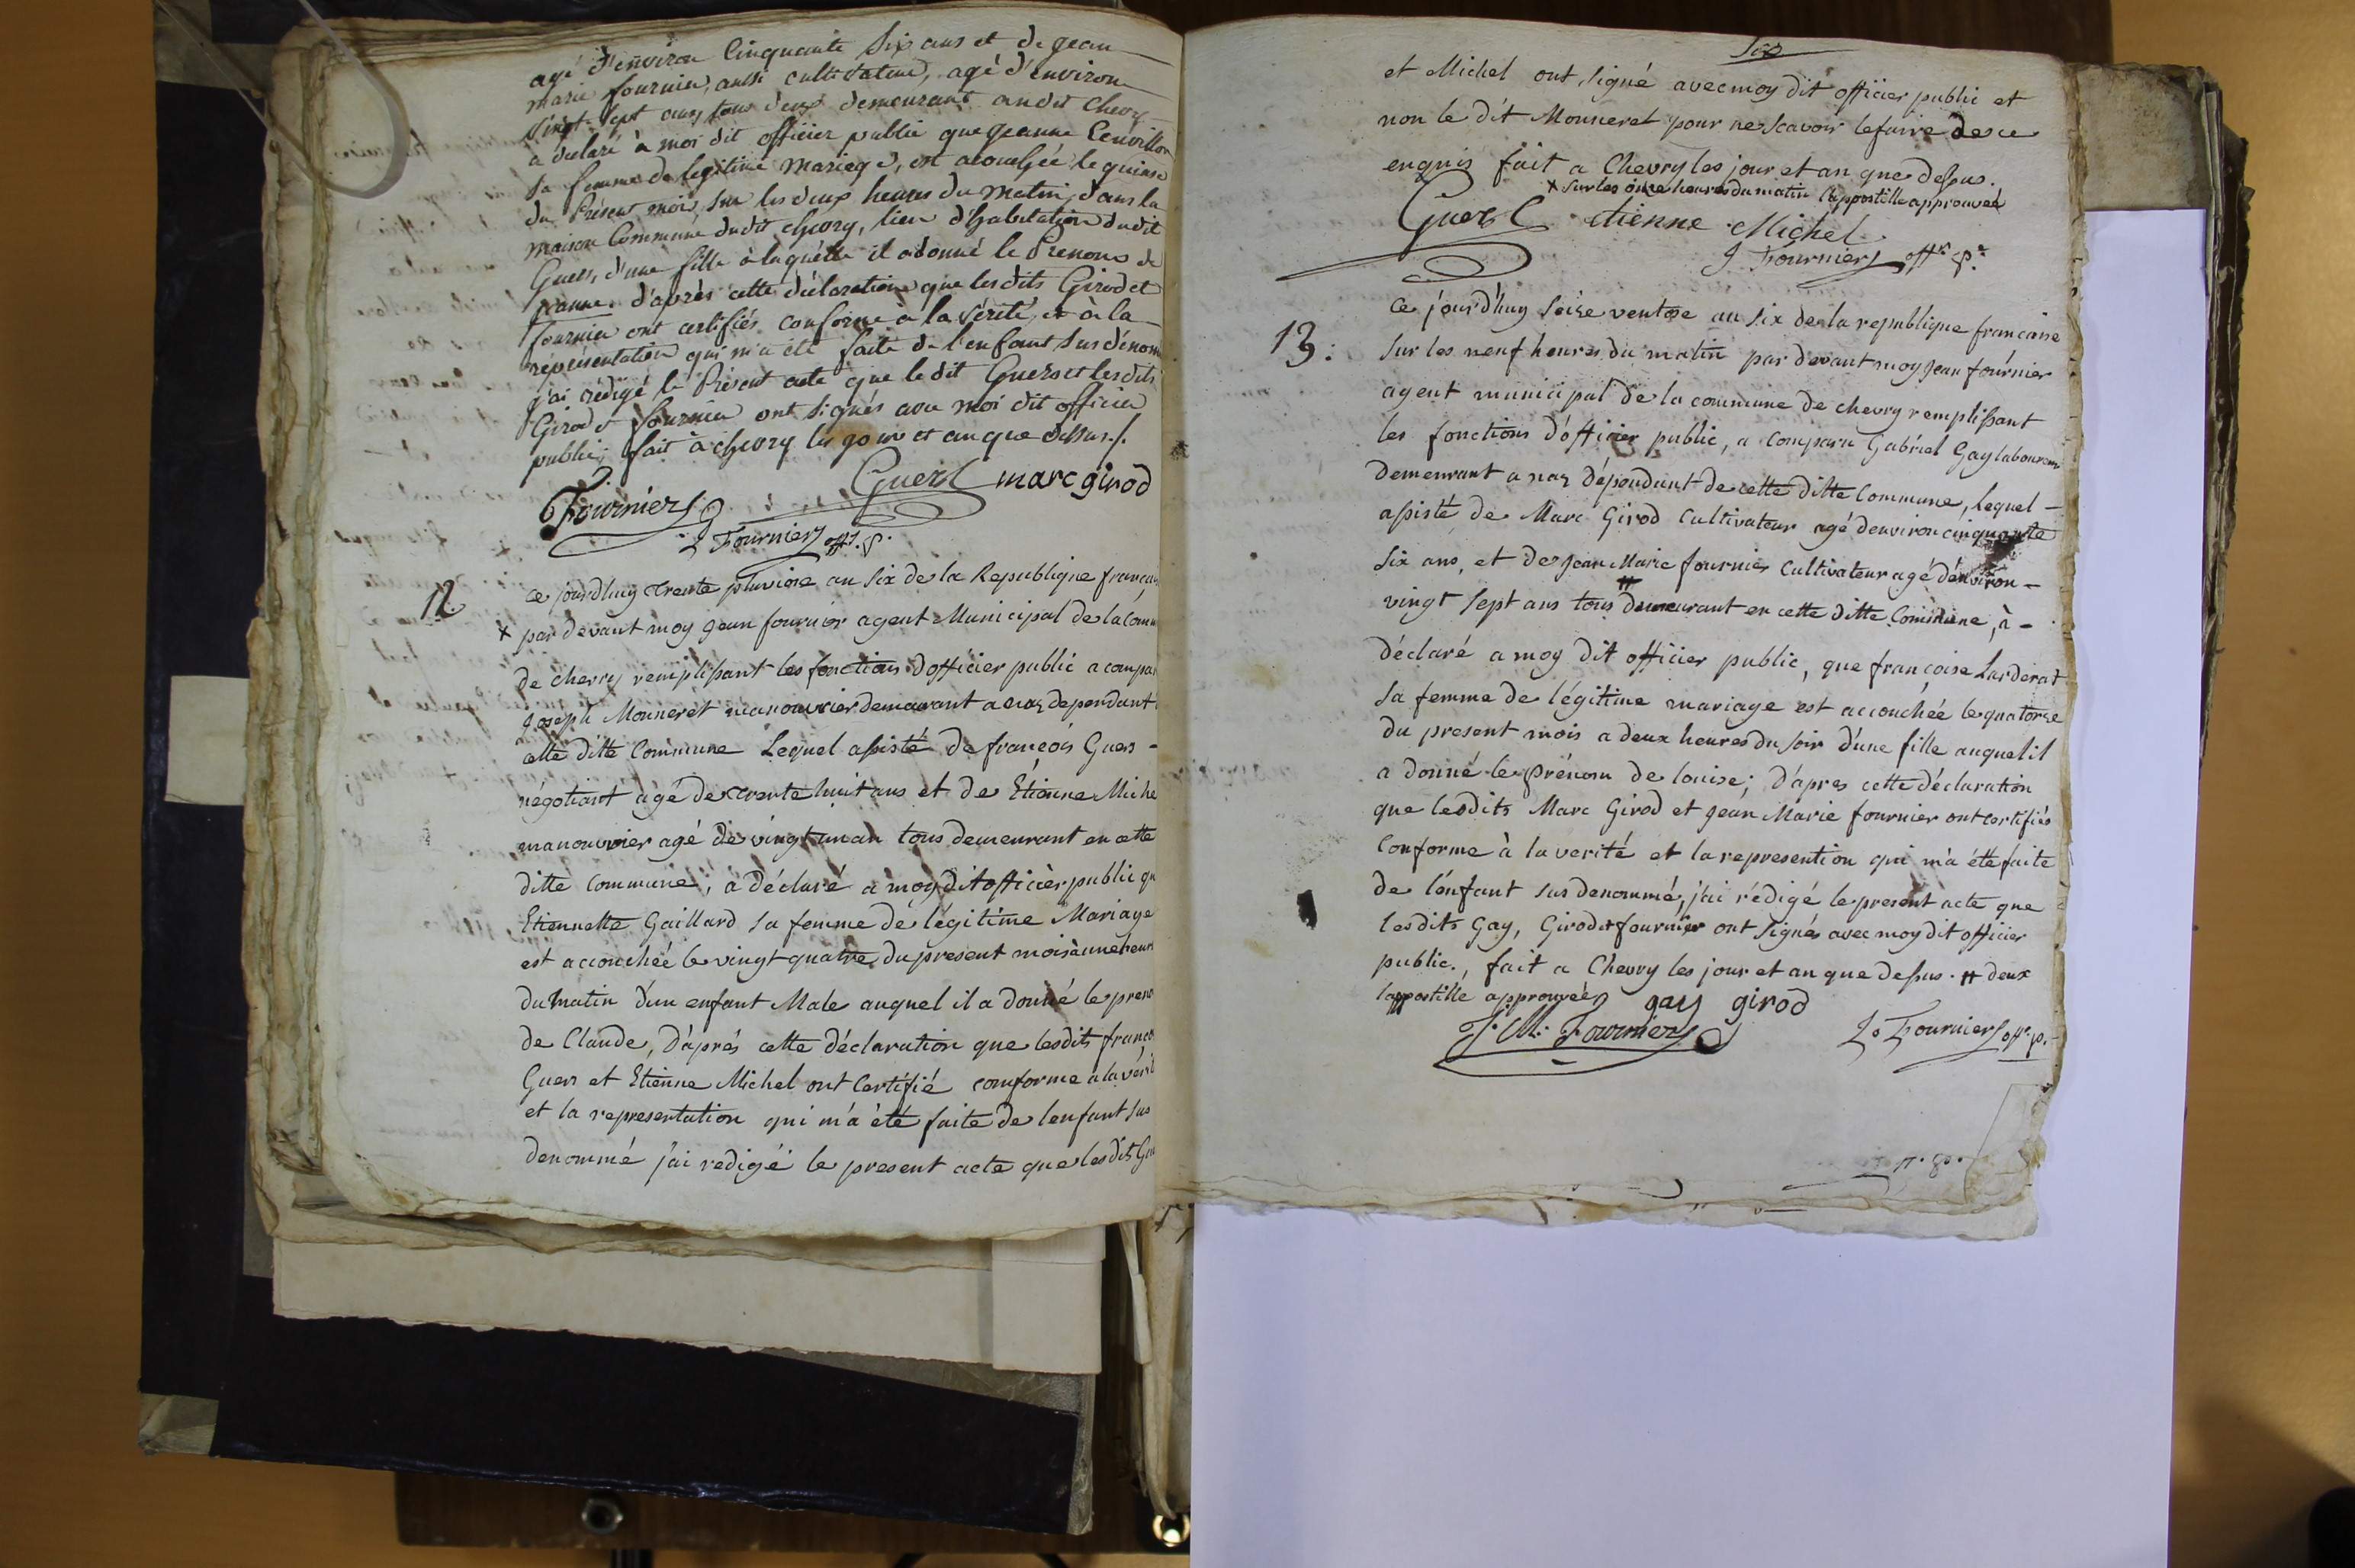 agé d'environ Cinquante Six ans et de jean
marie fournier, aussi cultivateur, agé d'environ
vingt-sept ans, tous deux demeurant audit Chevry
a déclaré à moi dit officier public que Jeanne
sa femme de legitime mariage, est accouchée le quinse
du Présent mois, sur les deux heures du matin, dans la
maison Commune dudit chevry, lieu d'habitation dudit
Guers, d'une fille à laquelle il a donné le Prenoms de
jeanne. d'après cette déclaration que les dits Girod et
fournier ont certifiés conforme à la vérité, et à la
représentation qui m'a été faite de l'enfant susdénom
j'ai rédigé le Présent acte que le dit Guers et les dits
Girod et fournier ont signés avec moi dit officier
public; fait à chevry les jour et an que dessus./.
Guers marc girod
Fournier
J Fournier off. p.
12.
ce jourdhuy trente pluviose an six de la Republique francai
x par devant moy jean fournier agent Municipal de la comm
de chevry remplissant les fonctions dofficier public a compar
joseph Monneret manouvrier demeurant a naz dependant
cette ditte Commune Lequel assisté de françois Guers -
négotiant agé de trente huit ans et de Etienne Miche
manouvrier agé de vingt un an tous demeurant en cette
ditte commune, a déclaré a moy dit officier public qu
Etiennette Gaillard sa femme de légitime Mariage
est accouchée le vingt quatre du present mois à une heur
du matin d'un enfant Male auquel il a donné le pren
de Claude, d'aprés cette déclaration que lesdits franço
Guers et Etienne Michel ont Certifié comforme a la vérit
et la representation qui m'a été faite de lenfant sus
denommé j'ai redigé le present acte que les dits Gu
Six
et Michel ont signé avec moy dit officier public et
non le dit Monneret pour ne scavoir le faire de ce
enquis fait a Chevry les jour et an que dessus.
x sur les onze heures du matin l'appostille approuvée
Guers etienne Michel
J Fournier offr. p.
13:
ce jourd'huy seize ventose an six de la republique francaise
sur les neuf heures du matin par devant moy jean fournier
agent municipal de la commune de chevry remplissant
les fonctions d'officier public, a comparu Gabriel Gay laboureur
demeurant a naz dépendant de cette ditte Commune, lequel -
assisté de Marc Girod Cultivateur agé denviron cinquante
six ans, et de jean Marie fournier Cultivateur agé d'environ -
vingt sept ans tous # demeurant en cette ditte Commune, à -
déclaré a moy dit officier public, que françoise Larderat
sa femme de légitime mariage est accouchée le quatorze
du present mois a deux heures du soir d'une fille auquel il
a donné le prénom de louise; d'apres cette déclaration
que lesdits Marc Girod et jean Marie fournier ont certifiés
Conforme à la verité et la represention qui m'a été faite
de l'enfant sus denommé, j'ai rédigé le present acte que
lesdits Gay, Girod et fournier ont signés avec moy dit officier
public., fait a Chevry les jour et an que dessus. # deux
lappostille approuvée gay girod
J. M. Fournier J. Fournier off. p.